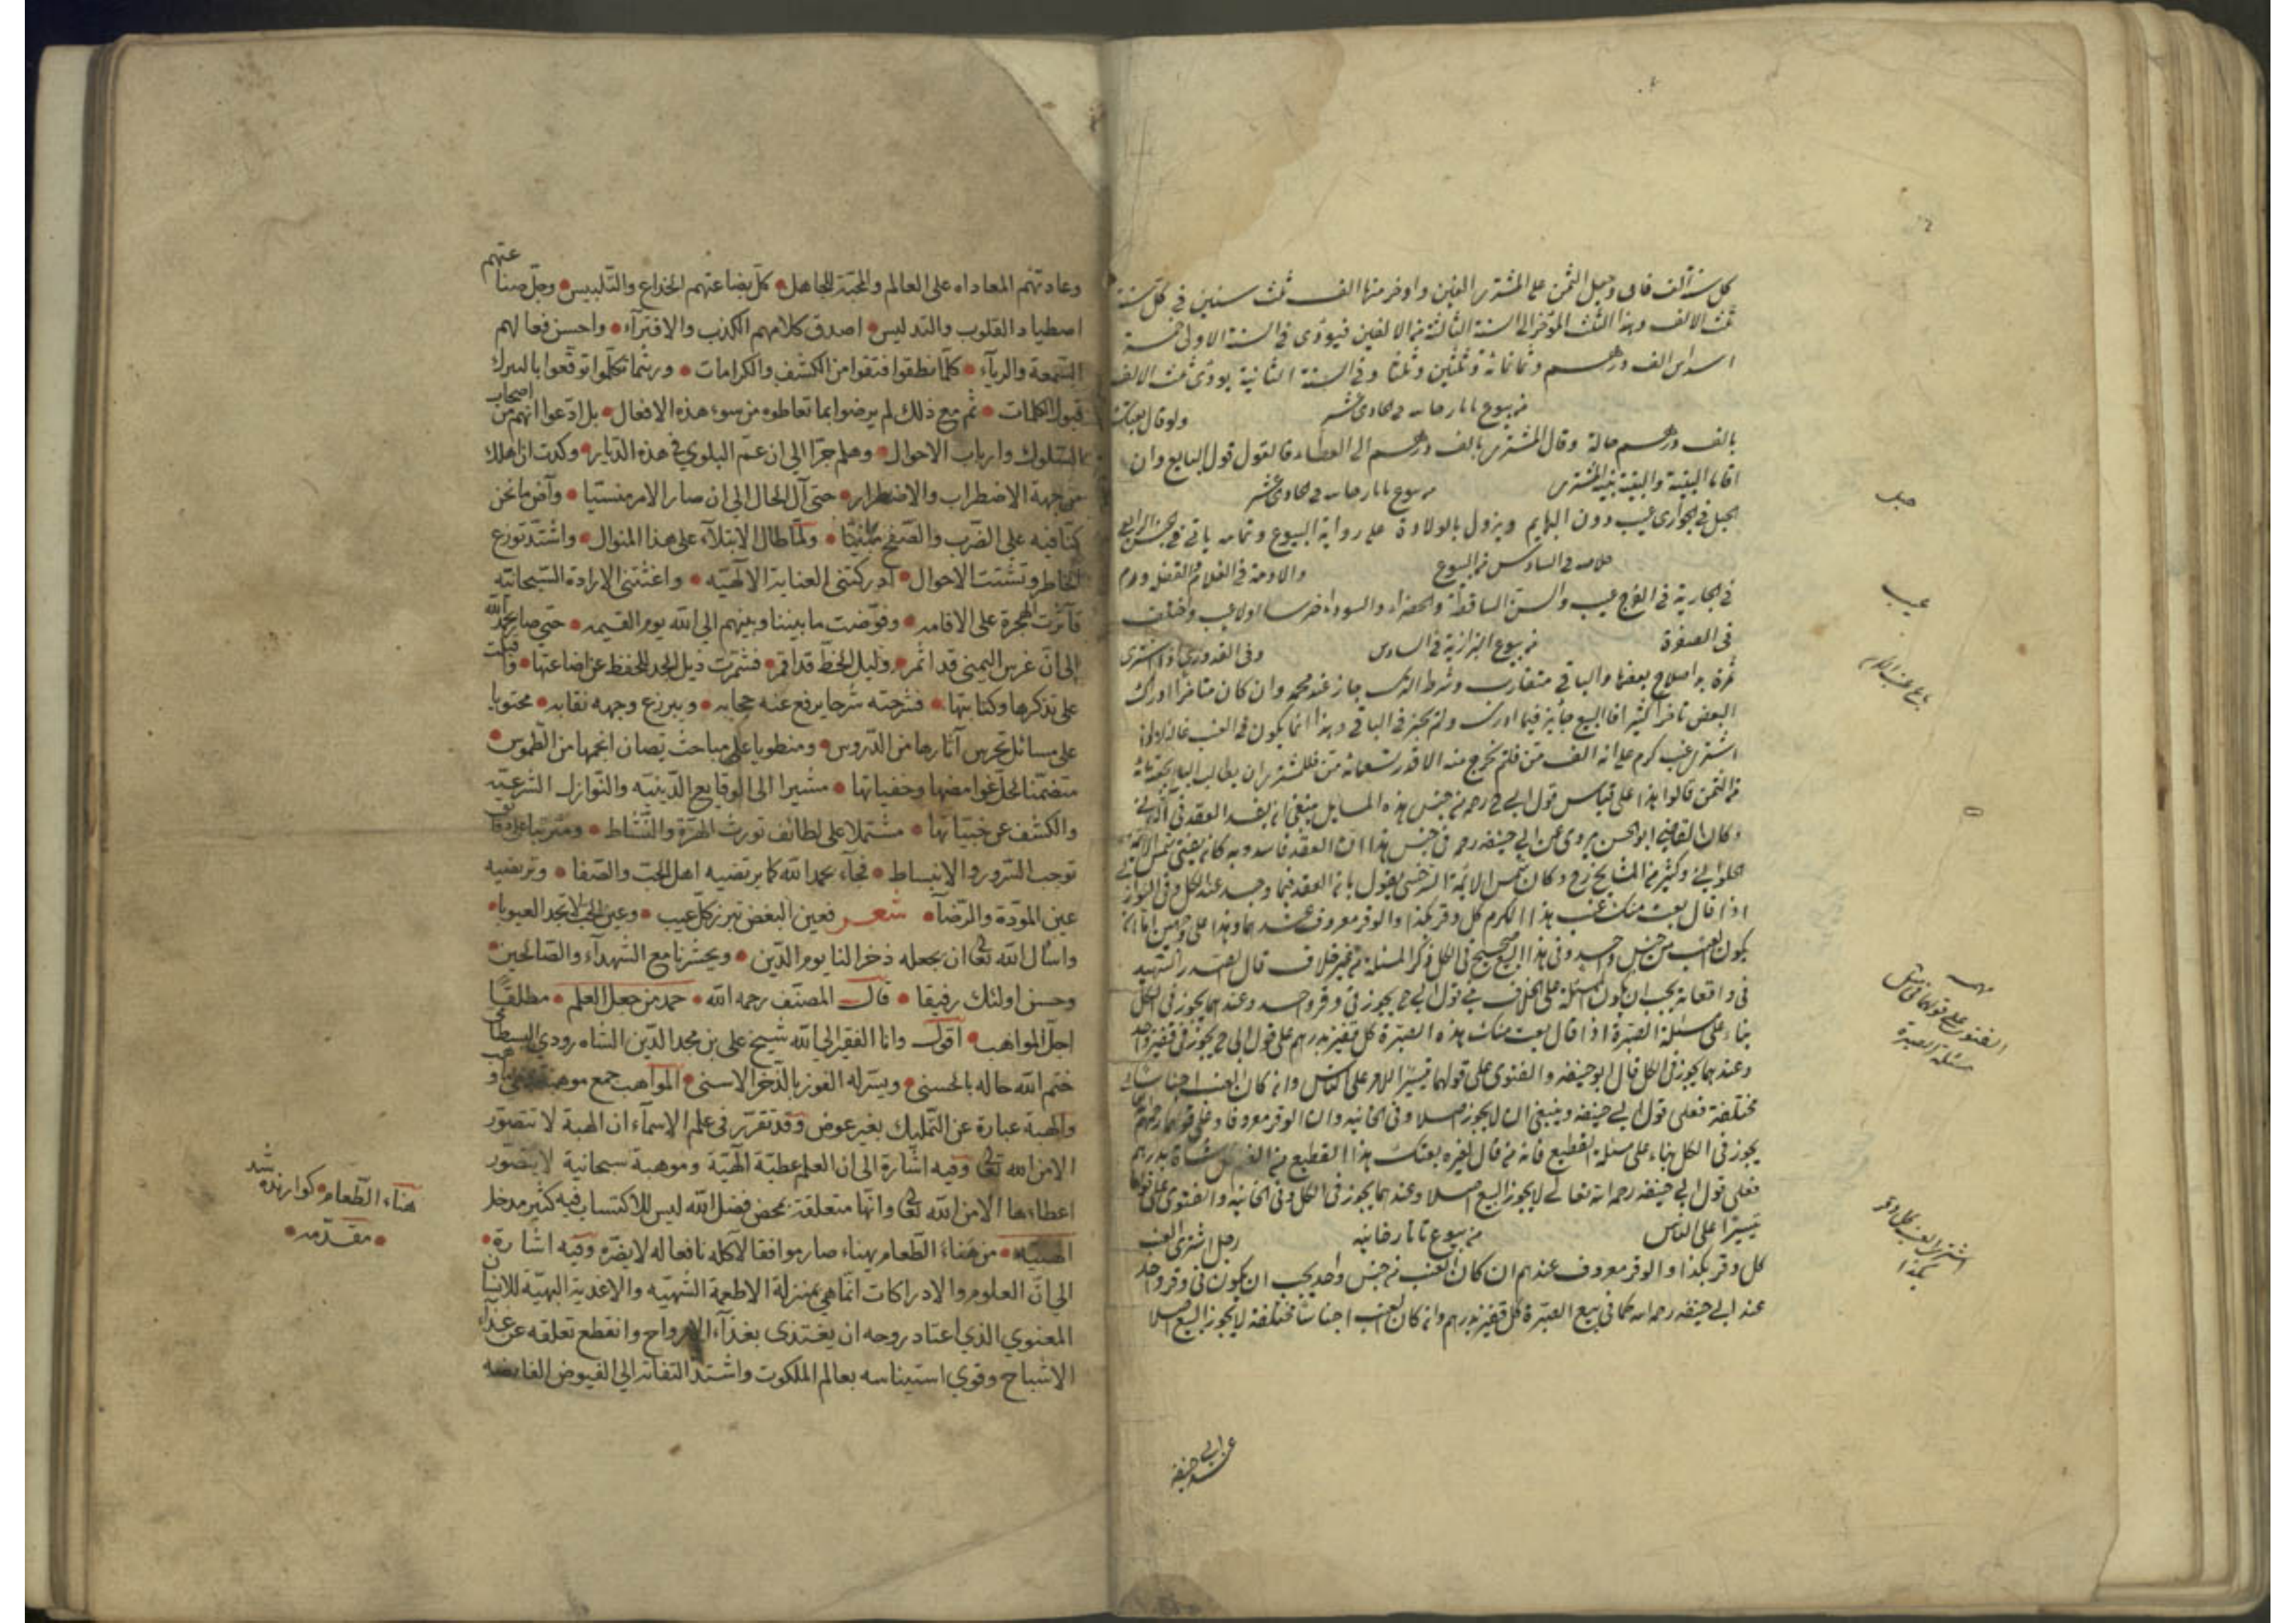 كل سنة ألف فان وجعل الثمن على المشترى الفين واوخر منها الف ثلث سنين في كل سنة
ثلث الالف وهذا الثلث المؤخر الى السنة الثالثة من الالفين فيودى في السنة الاولى خمسة
اسداس الف درهم وثمانمائة وثلثين وثلثا وفي السنة الثانية يودى ثلث الالف
من بيوع تاتارخانيه في الحادى عشر ولو قال بعتك
بالف درهم حالة وقال المشترى بالف درهم الى العطاء فالقول قول البايع وان
اقاما البينة والبينة بينة المشترى من بيوع تاتارخانيه في الحادى عشر
الحبل في الجوارى عيب دون البهايم ويزول بالولادة على رواية البيوع وتمامه ياتى في
خلاصه في السادس من البيوع
في الجارية في الفرج عيب والسن الساقطة والخضراء والسوداء ضرسا اولا عيب واختلف
في الصفرة من بيوع البزازية في السادس وفي القدورى اذا اشترى
ثمرة بدا صلاح بعضها والباقى متقارب وشرط الترك جاز عند محمد وان كان متاخرا ادراك
البعض تاخرا كثيرا فالبيع جايز فيما ادرك ولم يجز في الباقى وهذا انما يكون في العنب
اشترى عنب كرم على انه الف من فلم يخرج منه الا قدر تسعمائة من فللمشترى ان يطالب البايع بحصة مائة
من الثمن قالوا هذا على قياس قول ابى ح رحمه من جنس هذه المسايل ينبغى ان يفسد العقد في الباقى
وكان القاضى ابو الحسن يروى عن ابى حنيفه رحمه في جنس هذا ان العقد فاسد وبه كان يفتى شمس الائمة
الحلوانى وكثير من المشايخ رح وكان شمس الائمة السرخسى يقول بان العقد فيما وجد عند الكل وفي النوازل
اذا قال بعت منك عنب هذا الكرم كل وقر بكذا والوقر معروف عندهما وهذا على وجهين اما ان
يكون العنب من جنس واحد وفي هذا البيع صحيح في الكل ذكر المسئلة من غير خلاف قال الصدر الشهيد
في واقعاته يجب ان يكون المسئلة على الخلاف في قول ابى ح يجوز في وقر واحد وعندهما يجوز في الكل
بناء على مسئلة الصبرة اذا قال بعت منك هذه الصبرة كل قفيز بدرهم على قول ابى ح يجوز في قفيز واحد
وعندهما يجوز في الكل قال ابو حنيفه والفتوى على قولهما تيسيرا للامر على الناس وان كان العنب اجناسا
مختلفة فعلى قول ابى حنيفه وينبغى ان لا يجوز اصلا وفي الخانيه وان الوقر معروفا وعلى قولهما رحمهم
يجوز في الكل بناء على مسئلة القطيع فانه من قال لغيره بعتك هذا القطيع من الغنم كل شاة بدرهم
فعلى قول ابى حنيفه رحمه الله تعالى لا يجوز البيع اصلا وعندهما يجوز في الكل وفي الخانيه والفتوى على قولهما
تيسيرا على الناس من بيوع تاتارخانيه رجل اشترى العنب
كل وقر بكذا والوقر معروف عندهم ان كان العنب من جنس واحد يجب ان يكون في وقر واحد
عند ابى حنيفه رحمه الله كما في بيع الصبرة كل قفيز بدرهم وان كان العنب اجناسا مختلفة لا يجوز البيع اصلا
عن ابى
حنيفه
حبل
عيب
باع عنب الكرم
مهمه
الفتوى على قولهما في
مسئلة الصبرة
اشترى العنب كل وقر
بكذا
وعادتهم المعاداه على العالم والمحبّة للجاهل كلّ بضاعتهم الخداع والتّلبيس وجلّ صناعتهم
اصطياد القلوب والتدليس اصدق كلامهم الكذب والافترآء واحسن فعالهم
السّمعة والريآء كلّما نطقوا فنقوا من الكشف والكرامات وربّما تكلّموا توقّعوا بالتبرك
قبول الكلمات ثم مع ذلك لم يرضوا بما تعاطوه من سوء هذه الافعال بل ادّعوا انهم من اصحاب
السّلوك وارباب الاحوال وهلم جرّا الى ان عمّ البلوي في هذه الدّيار وكدت ان اهلك
من جهة الاضطراب والاضطرار حتى آل الحال الى ان صار الامر منسيّا وآض ما نحن
كنّا فيه على الضّرب والصّفح مبنيّا ولمّا طال الابتلآء على هذا المنوال واشتدّ توزع
الخاطر وتشتت الاحوال ادركتنى العناية الالٰهيّه واغثتنى الارادة السّبحانيّه
فآثرت الهجرة على الاقامه وفوّضت ما بيننا وبينهم الى الله يوم القيمه حتى صار بحمد الله
الى انّ غرس اليمنى قد اثمر وليل الحظّ قد اقمر فشمّرت ذيل الجد للحفظ عن اضاعتها واقبلت
على تذكرها وكتابتها فشرحته شرحا يرفع عنه حجابه ويبرز عن وجهه نقابه محتويا
على مسائل تحرس آثارها من الدّروس ومنطويا على مباحث يصان انجمها من الطّموس
متضمّنا لحلّ غوامضها وخفياتها مشيرا الى الوقايع الدّينيّه والنّوازل الشّرعيّه
والكشف عن خبيّاتها مشتملا على لطائف تورث الهزّة والنّشاط ومترتبا على دقايق
توجب السّرور والانبساط فجآء بحمد الله كما يرتضيه اهل الحبّ والصّفا وترتضيه
عين المودّة والرّضآ شعر فعين البغض تبرز كلّ عيب وعين الحبّ لا تجد العيوبا
واسأل الله تعالى ان يجعله ذخرا لنا يوم الدّين ويحشرنا مع الشّهدآء والصّالحين
وحسن اولئك رفيقا قال المصنّف رحمه الله حمد من جعل العلم مطلقا
اجلّ المواهب اقول وانا الفقير الى الله شيخ على بن مجد الدّين الشّاهرودي البسطامى
ختم الله حاله بالحسنى ويسّر له الفوز بالذّخر الاسنى المواهب جمع موهبة
والهبة عبارة عن التّمليك بغير عوض وقد تقرّر في علم الاسمآء ان الهبة لا تتصوّر
الا من الله تعالى وفيه اشارة الى ان العلم عطيّة الٰهيّة وموهبة سبحانية لا يتصوّر
اعطاءها الا من الله تعالى وانّها متعلقة بمحض فضل الله ليس للاكتساب فيه كثير مدخل
الهنيّه من هناءَ الطّعام يهناء صار موافقا لآكله نافعا له لا يضرّه وفيه اشارة
الى انّ العلوم والادراكات انّما هى بمنزلة الاطعمة الشّهيّه والاغذية البهيّة للانسان
المعنوي الذي اعتاد روحه ان يغتذى بغذآء الارواح وانقطع تعلقه عن غذآء
الاشباح وقوي استيناسه بعالم الملكوت واشتدّ التفاته الى الفيوض الفايضه
هناء الطّعام كوارنده شد
مقدّمه